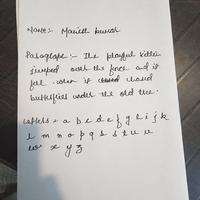 Name:- Manish kumar
Paragraph:- The playful kitten
jumped over the fence and it
feel when it chased
butterflies under the old tree.
letters = a b c d e f g h i j k
l m n o p q s s t u v
w x y z